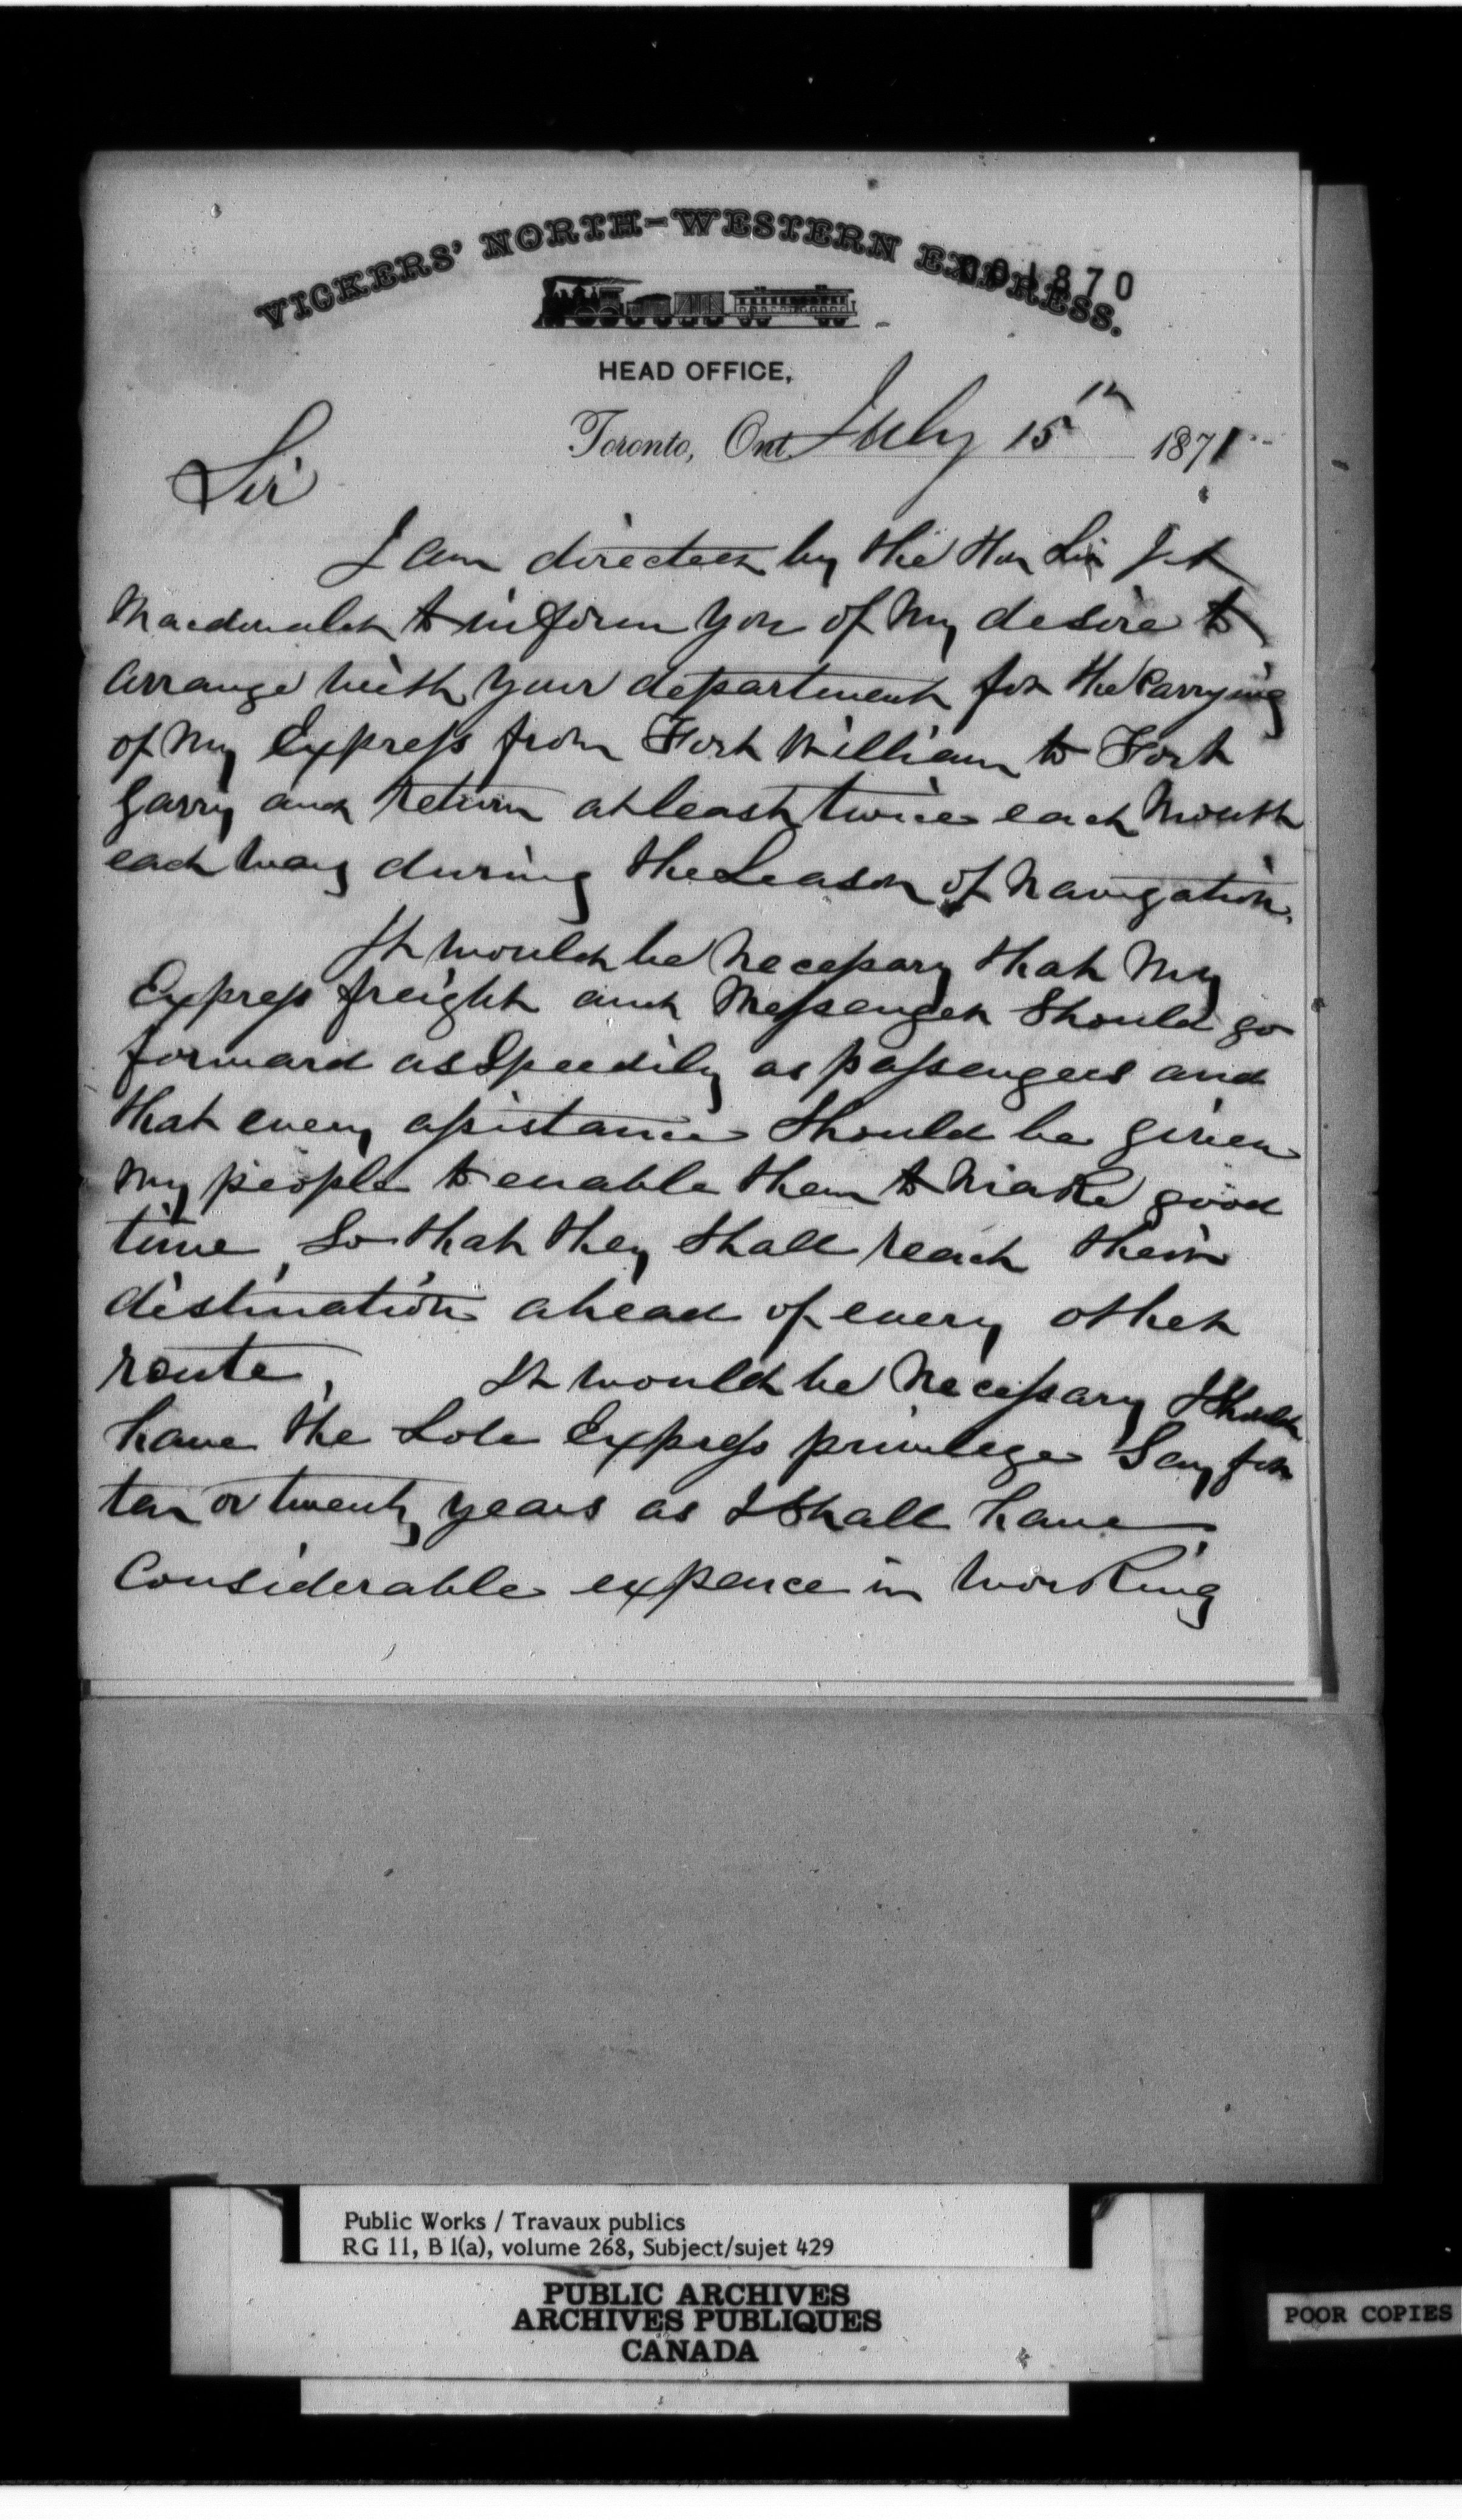 VICKERS' NORTH-WESTERN EXPRESS.
001870
HEAD OFFICE,
Toronto, Ont. July 15th 1871
Sir
I am directed by the Hon Sir J A
Macdonald to inform you of my desire to
arrange with your department for the Carrying
of my Express from Fort William to Fort
Garry and return at least twice each Month
each way during the Season of Navigation.
It would be Necessary that My
Express freight and Messenger Should go
forward as Speedily as passengers and
that every assistance Should be given
my people to enable them to Make good
time, So that they Shall reach their
destination ahead of every other
route, It would be Necessary I Should
have the Sole Express privilege Say for
ten or twenty years as I Shall have
Considerable expence in Working
Public Works / Travaux publics
RG 11, B 1(a), volume 268, Subject/sujet 429
PUBLIC ARCHIVES
ARCHIVES PUBLIQUES
CANADA
POOR COPIES